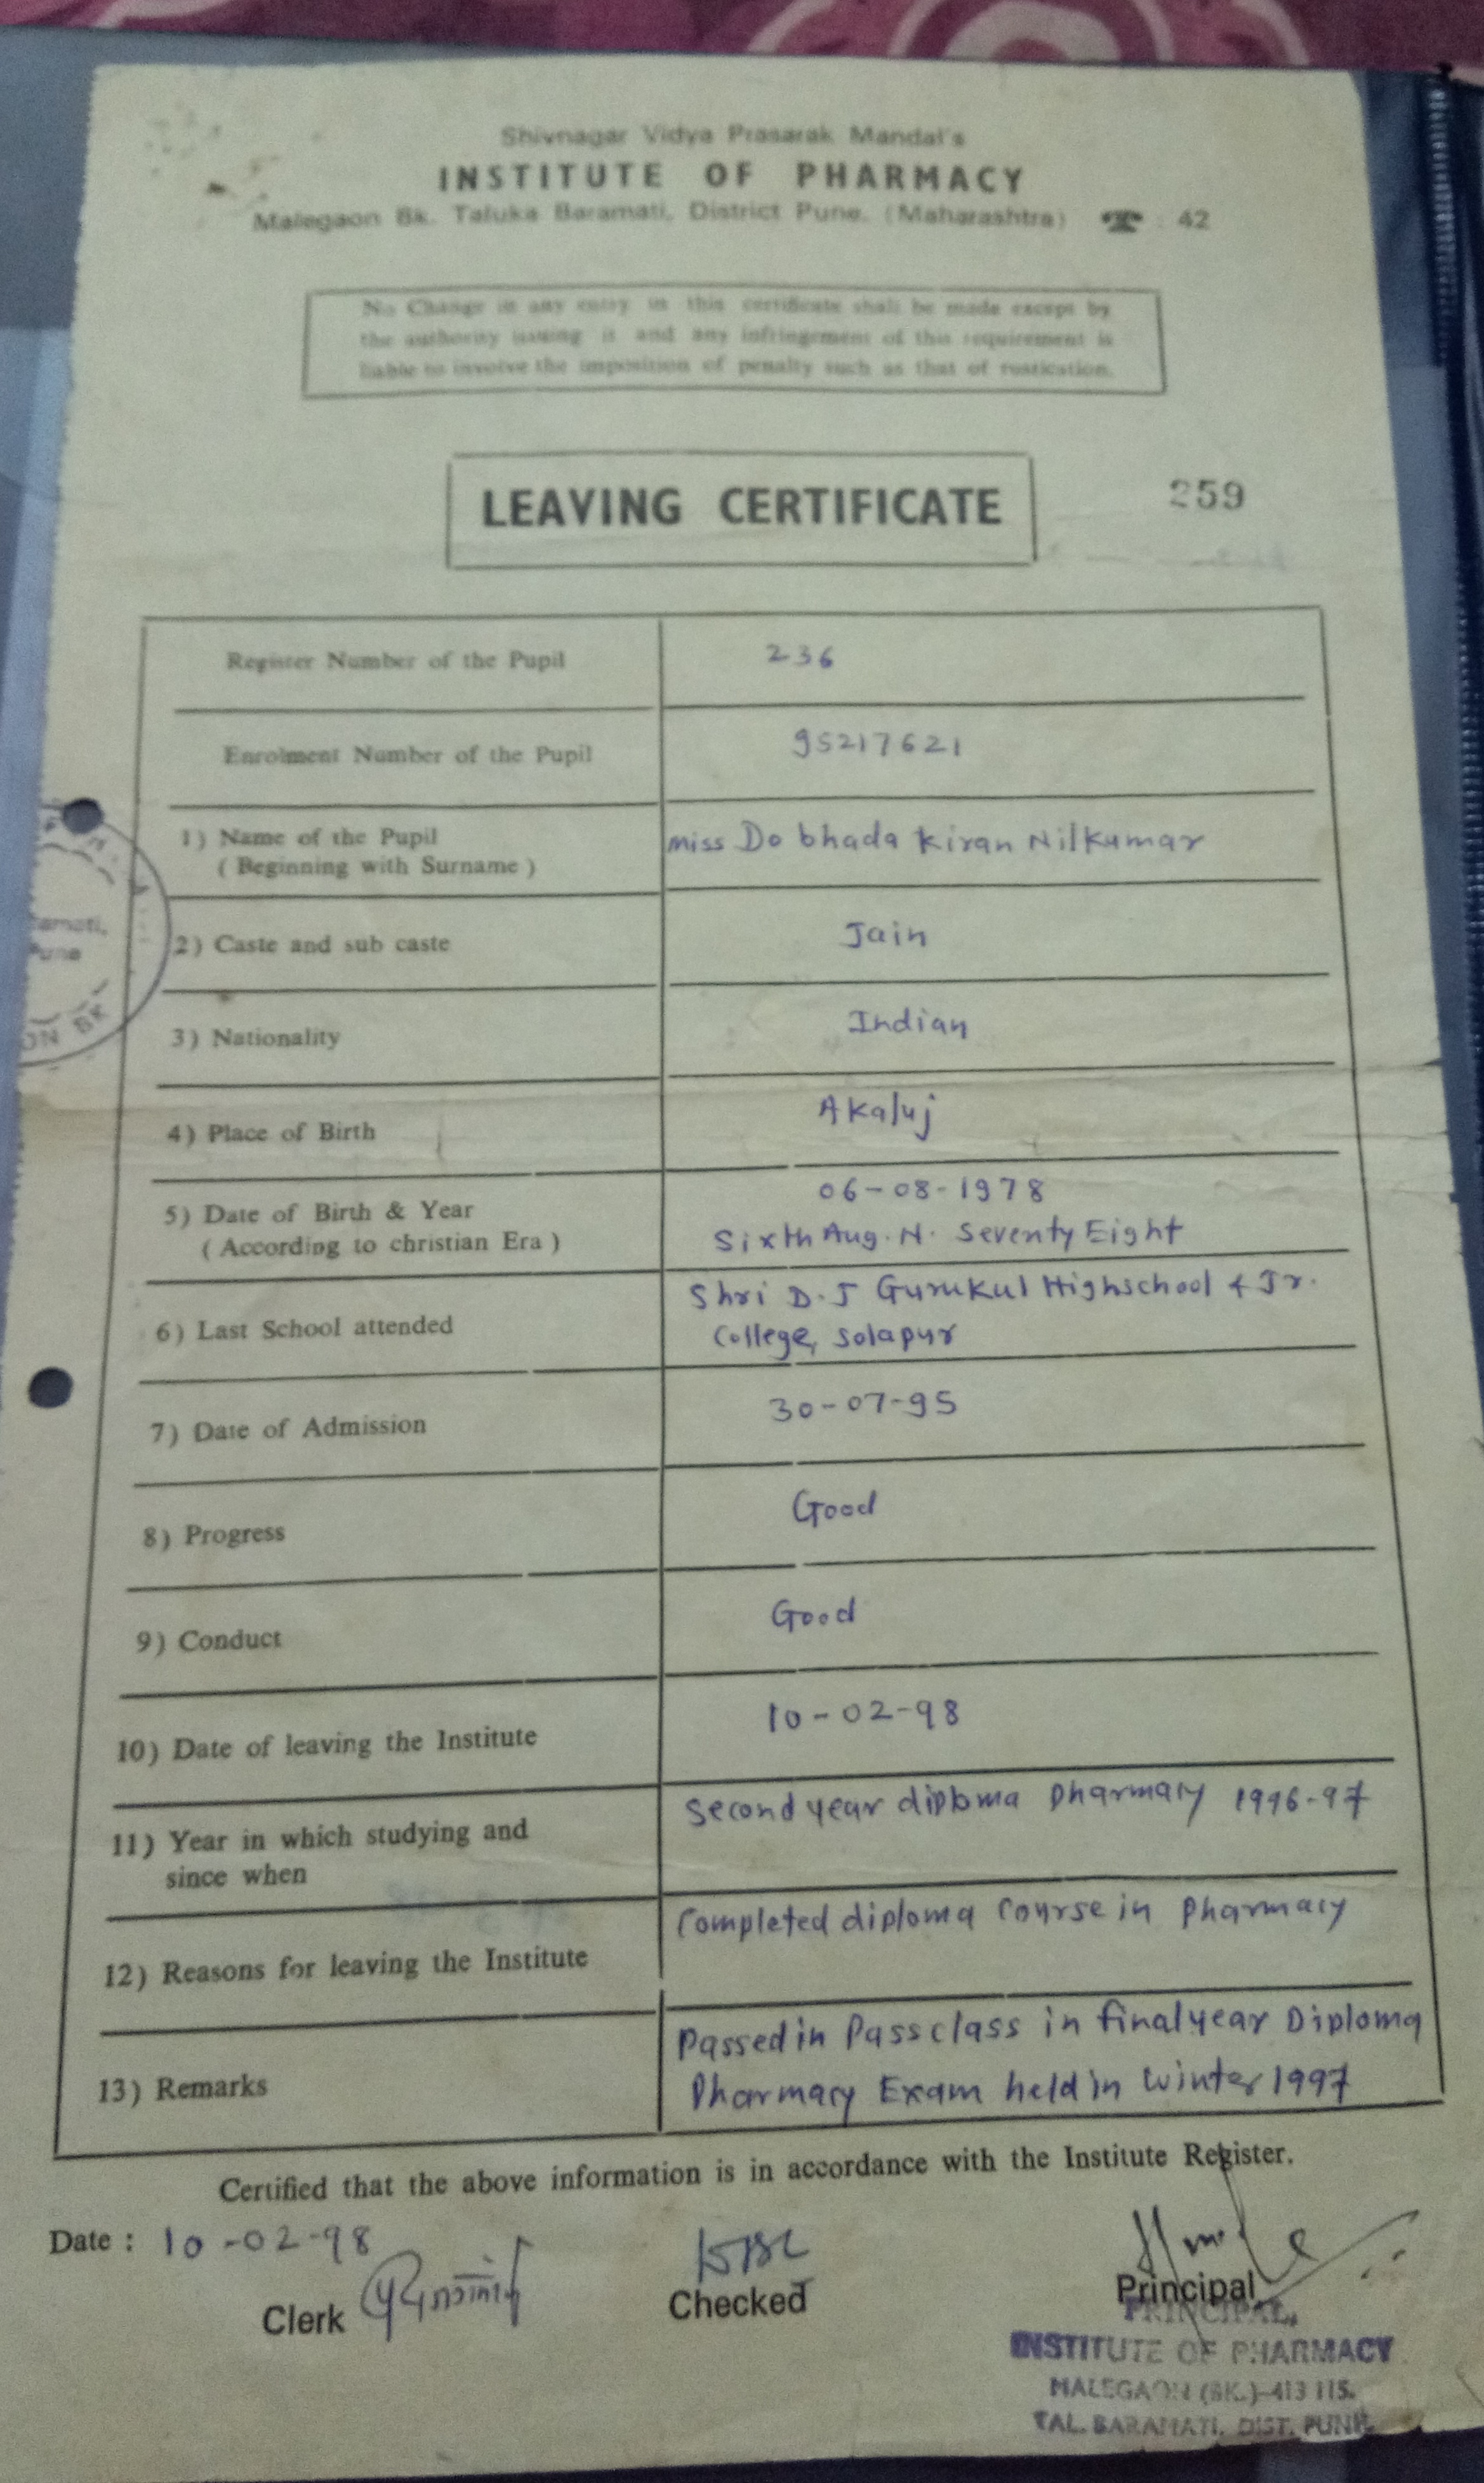 Shivnagar Vidya Prasarak Mandal's
INSTITUTE OF PHARMACY
Malegaon Bk. Taluka Baramati, District Pune. (Maharashtra) ☎ : 42
No Change in any entry in this certificate shall be made except by
the authority issuing it and any infringement of this requirement is
liable to involve the imposition of penalty such as that of rustication.
LEAVING CERTIFICATE 259
Register Number of the Pupil 236
Enrolment Number of the Pupil 95217621
1) Name of the Pupil miss Dobhada Kiran Nilkumar
( Beginning with Surname )
2) Caste and sub caste Jain
3) Nationality Indian
4) Place of Birth Akaluj
5) Date of Birth & Year 06-08-1978
( According to christian Era ) Sixth Aug. N. Seventy Eight
6) Last School attended Shri D.J Gurukul Highschool & Jr.
College, Solapur
7) Date of Admission 30-07-95
8) Progress Good
9) Conduct Good
10) Date of leaving the Institute 10-02-98
11) Year in which studying and Second year diploma pharmacy 1996-97
since when
12) Reasons for leaving the Institute Completed diploma Course in pharmacy
13) Remarks Passed in Pass class in final year Diploma
Pharmacy Exam held in Winter 1997
Certified that the above information is in accordance with the Institute Register.
Date : 10-02-98
Clerk Checked Principal
PRINCIPAL,
INSTITUTE OF PHARMACY
MALEGAON (BK.)-413 115.
TAL. BARAMATI, DIST. PUNE.